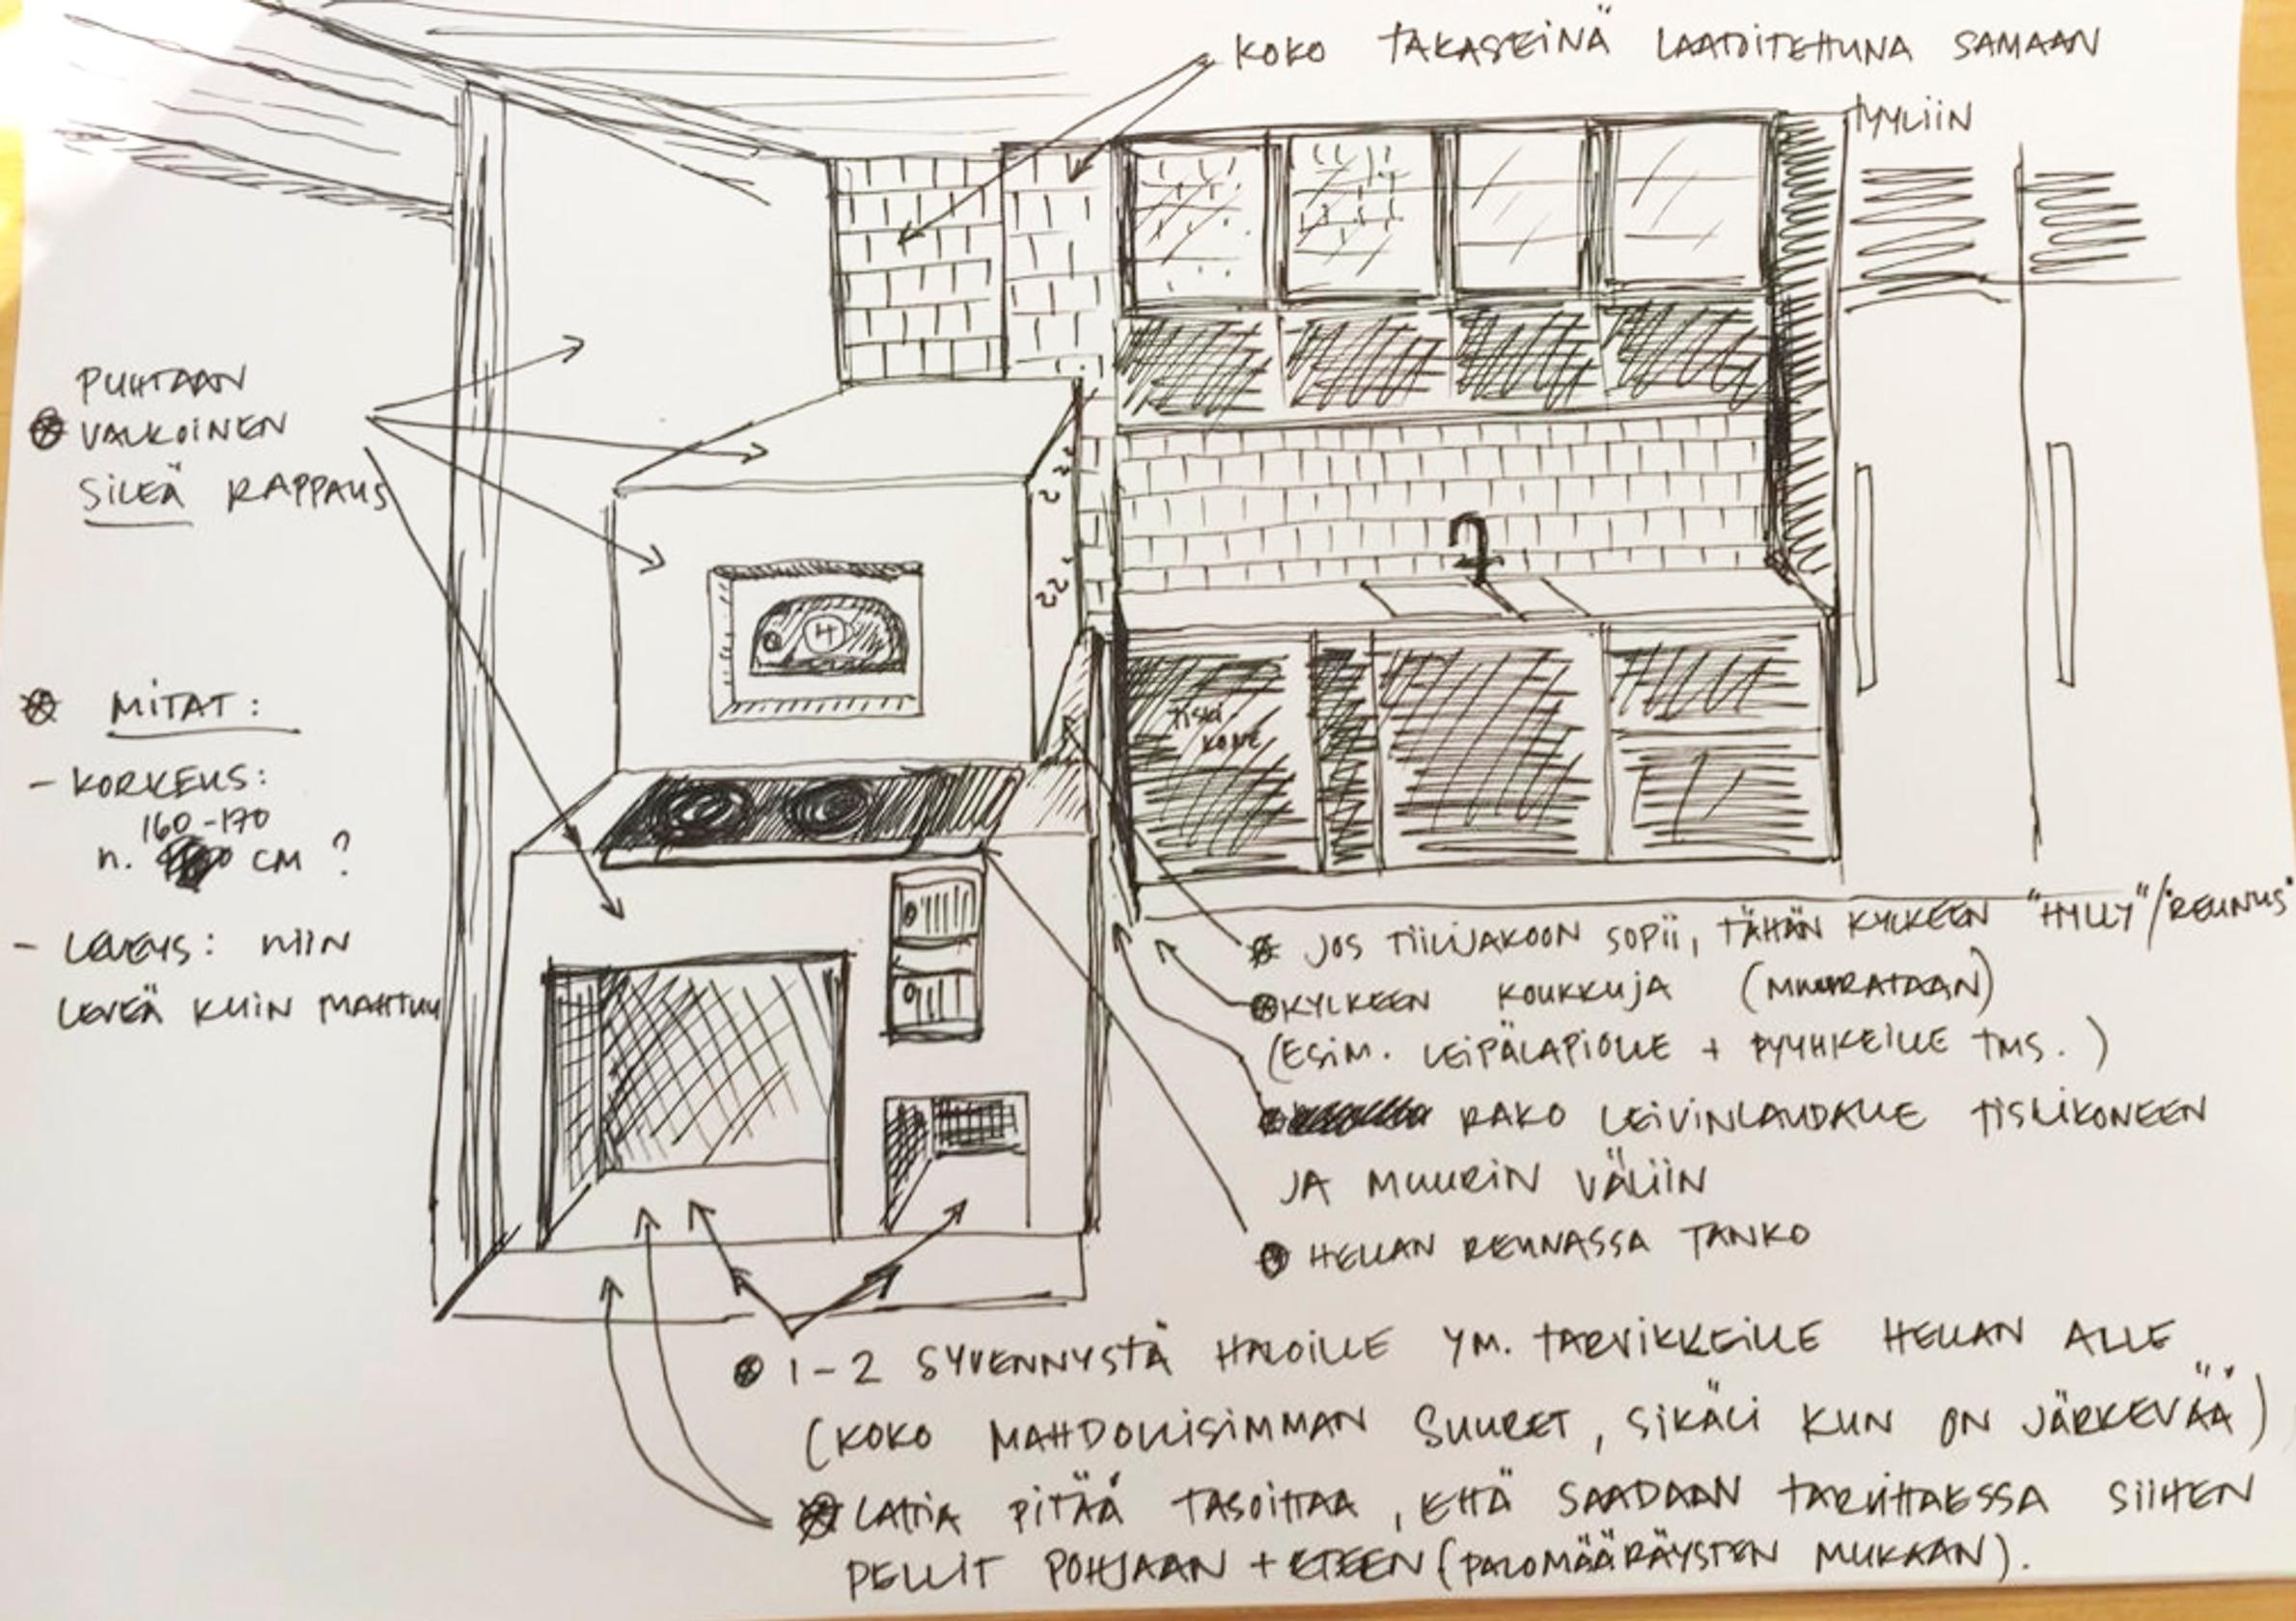 KOKO TAKASEINÄ LAATOITETTUNA SAMAAN
TYYLIIN
PUHTAAN
VALKOINEN
SILEÄ RAPPAUS
MITAT:
- KORKEUS:
160-170
n. CM ?
- LEVEYS: NIIN
LEVEÄ KUIN MAHTUU
TISKI
KONE
JOS TIILIJAKOON SOPII, TÄHÄN KYLKEEN "HYLLY"/"REUNUS"
KYLKEEN KOUKKUJA (MUURATAAN)
(ESIM. LEIPÄLAPIOLLE + PYYHKEILLE TMS.)
RAKO LEIVINLAUDALLE TISKIKONEEN
JA MUURIN VÄLIIN
HELLAN REUNASSA TANKO
1-2 SYVENNYSTÄ HALOILLE YM. TARVIKKEILLE HELLAN ALLE
(KOKO MAHDOLLISIMMAN SUURET, SIKÄLI KUN ON JÄRKEVÄÄ)
LATTIA PITÄÄ TASOITTAA, ETTÄ SAADAAN TARVITTAESSA SIIHEN
PELLIT POHJAAN + ETEEN (PALOMÄÄRÄYSTEN MUKAAN).